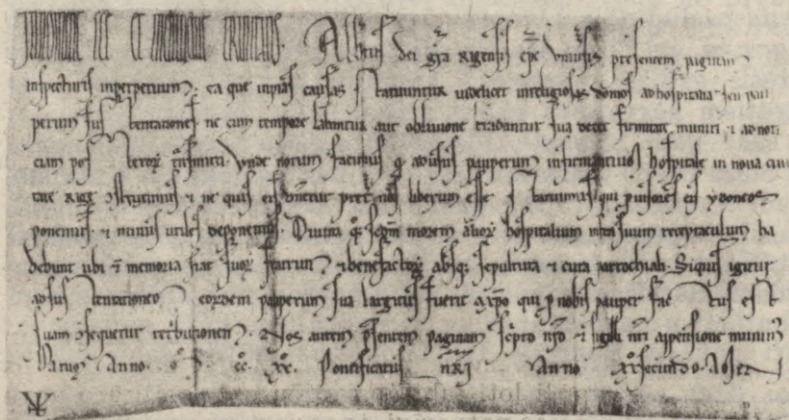 IN NOMINE SCE ET INDIVIDUE TRINITATIS. Albtus dei gra rigensis epc vniusis presentem paginam
inspecturis inperpetuum. ea que in pias causas statuuntur videlicet in religiosas domos ad hospitalia seu pau
perum sustentationes ne cum tempore labuntur aut obliuione tradantur sua debet firmitate muniri & ad noti
ciam posterorum tnsmitti. Vnde notum facimus qd ad usus pauperum infirmantium hospitale in noua ciui
tate rige construximus & ne quis eis dnetur preter nos liberum esse statuimus qui puisores eis ydoneos
ponemus & minus utiles deponemus. Diuina qoq sedm morem alior hospitalium infra suum receptaculum ha
bebunt ubi & memoria fiat suor fratrum & benefactor absq sepultura & cura parrochiali. Siquis igitur
ad sustentationem eorundem pauperum sua largitus fuerit a xpo qui p nobis pauper factus est
suam consequetur retributionem. Nos autem psentem paginam scpto nro & sigilli nri appensione muniuim
Datum Anno. cc. xx. Pontificatus nri Anno xx secundo